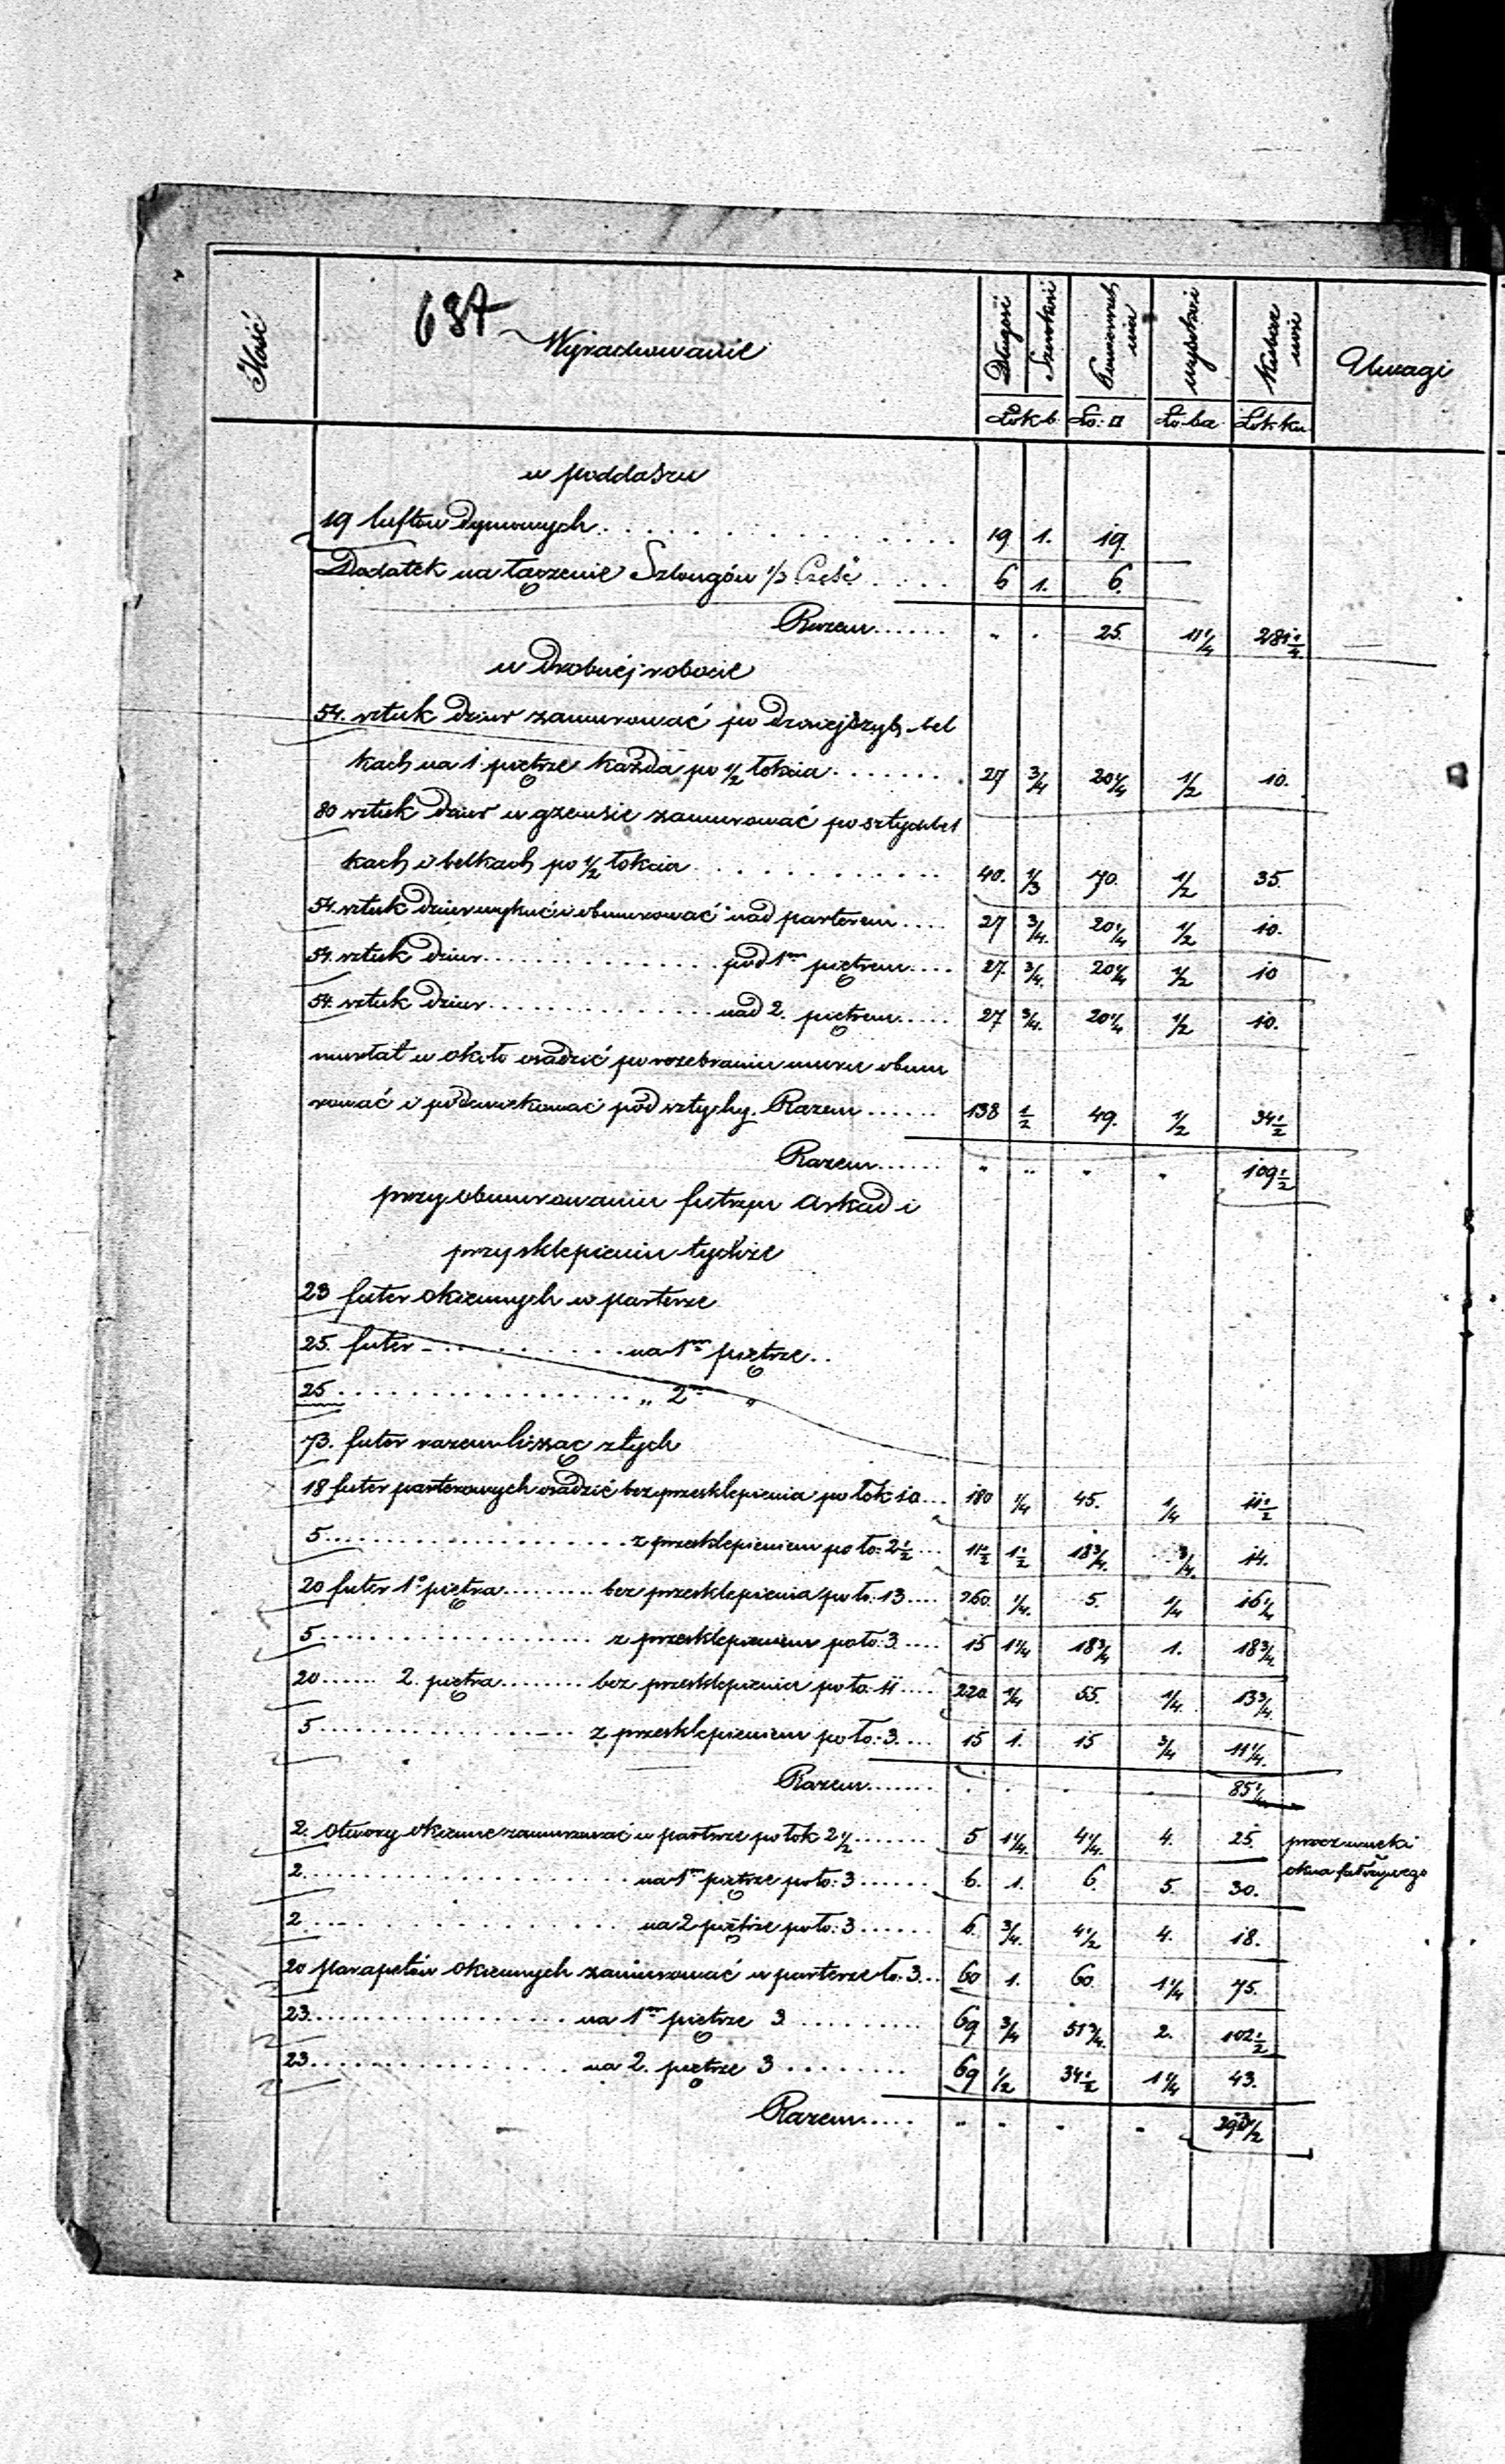 687
Ilość Wyrachowanie Długość Szerokość Powierzchnia wysokość Kubiczność Uwagi
Łok b. Ło: □ Ło: bа Łok ku
w poddaszu
19 luftów dymowych 19 1. 19.
Dodatek na łączenie Szlongów 1/3 Część 6 1. 6.
Razem 25. 11 1/4 281 1/4
w drobnéj robocie
54. sztuk dziur zamurować po dzisiejszych bel
kach na 1. piętrze każda po 1/2 łokcia 27 3/4 20 1/4 1/2 10.
80 sztuk dziur w gzemsie zamurować po sztychbel
kach i belkach po 1/2 łokcia 40. 1/3 70. 1/2 35.
54. sztuk dziur wykuć i obmurować nad parterem 27 3/4. 20 1/4 1/2 10.
54. sztuk dziur pod 1m piętrem 27. 3/4. 20 1/4 1/2 10
54. sztuk dziur nad 2. piętrem 27 3/4. 20 1/4 1/2 10.
murłat w około osadzić po rozebraniu muru obmu
rować i pod sztychy. Razem 138 1/2 49. 1/2 34 1/2
Razem " " " " 109 1/2
przy obmurowaniu futryn arkad i
przysklepieniu tychże
23 futer okiennych w parterze
25. futer na 1m piętrze
25 " 2m "
73. futer razem licząc z tych
18 futer parterowych osadzić bez przesklepienia po łok 10 180 1/4 45. 1/4 11 1/2
5 z przesklepieniem po ło: 2 1/2 11 1/2 1 1/2 18 3/4. 3/4. 14.
20 futer 1o piętra bez przesklepienia po ło: 13 260. 1/4. 5. 1/4 16 1/4
5 z przesklepieniem po ło: 3. 15 1 1/4 18 3/4 1. 18 3/4
20 2. piętra bez przesklepienia po ło: 11 220 1/4 55. 1/4. 13 3/4.
5 z przesklepieniem po ło: 3. 15 1. 15 3/4 11 1/4.
Razem 85 1/4
2. otwory okienne zamurować w parterze po łok 2 1/2 5 1 1/4. 4 1/4. 4. 25.
2. na 1m piętrze po ło: 3 6. 1. 6. 5. 30.
okna
2. na 2 piętrze po ło: 3 6. 3/4. 4 1/2 4. 18.
20 parapetów okiennych zamurować w parterze ło. 3. 60 1. 60. 1 1/4 75.
23. na 1m piętrze 3 69 3/4 51 3/4. 2. 102 1/2
23. na 2. piętrze 3 69 1/2 34 1/2 1 1/4 43.
Razem " " " " 293 1/2